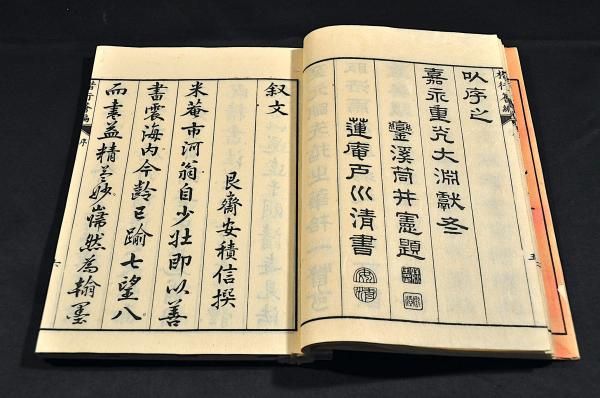 㕥序之
嘉永重光大淵獻冬
鑾溪筒井憲題
蓮庵戸川清書
叙文
艮齋安積信撰
米庵市河翁自少壯即以善
書震海内今齡已踰七望八
而書益精益妙巋然為翰墨
序